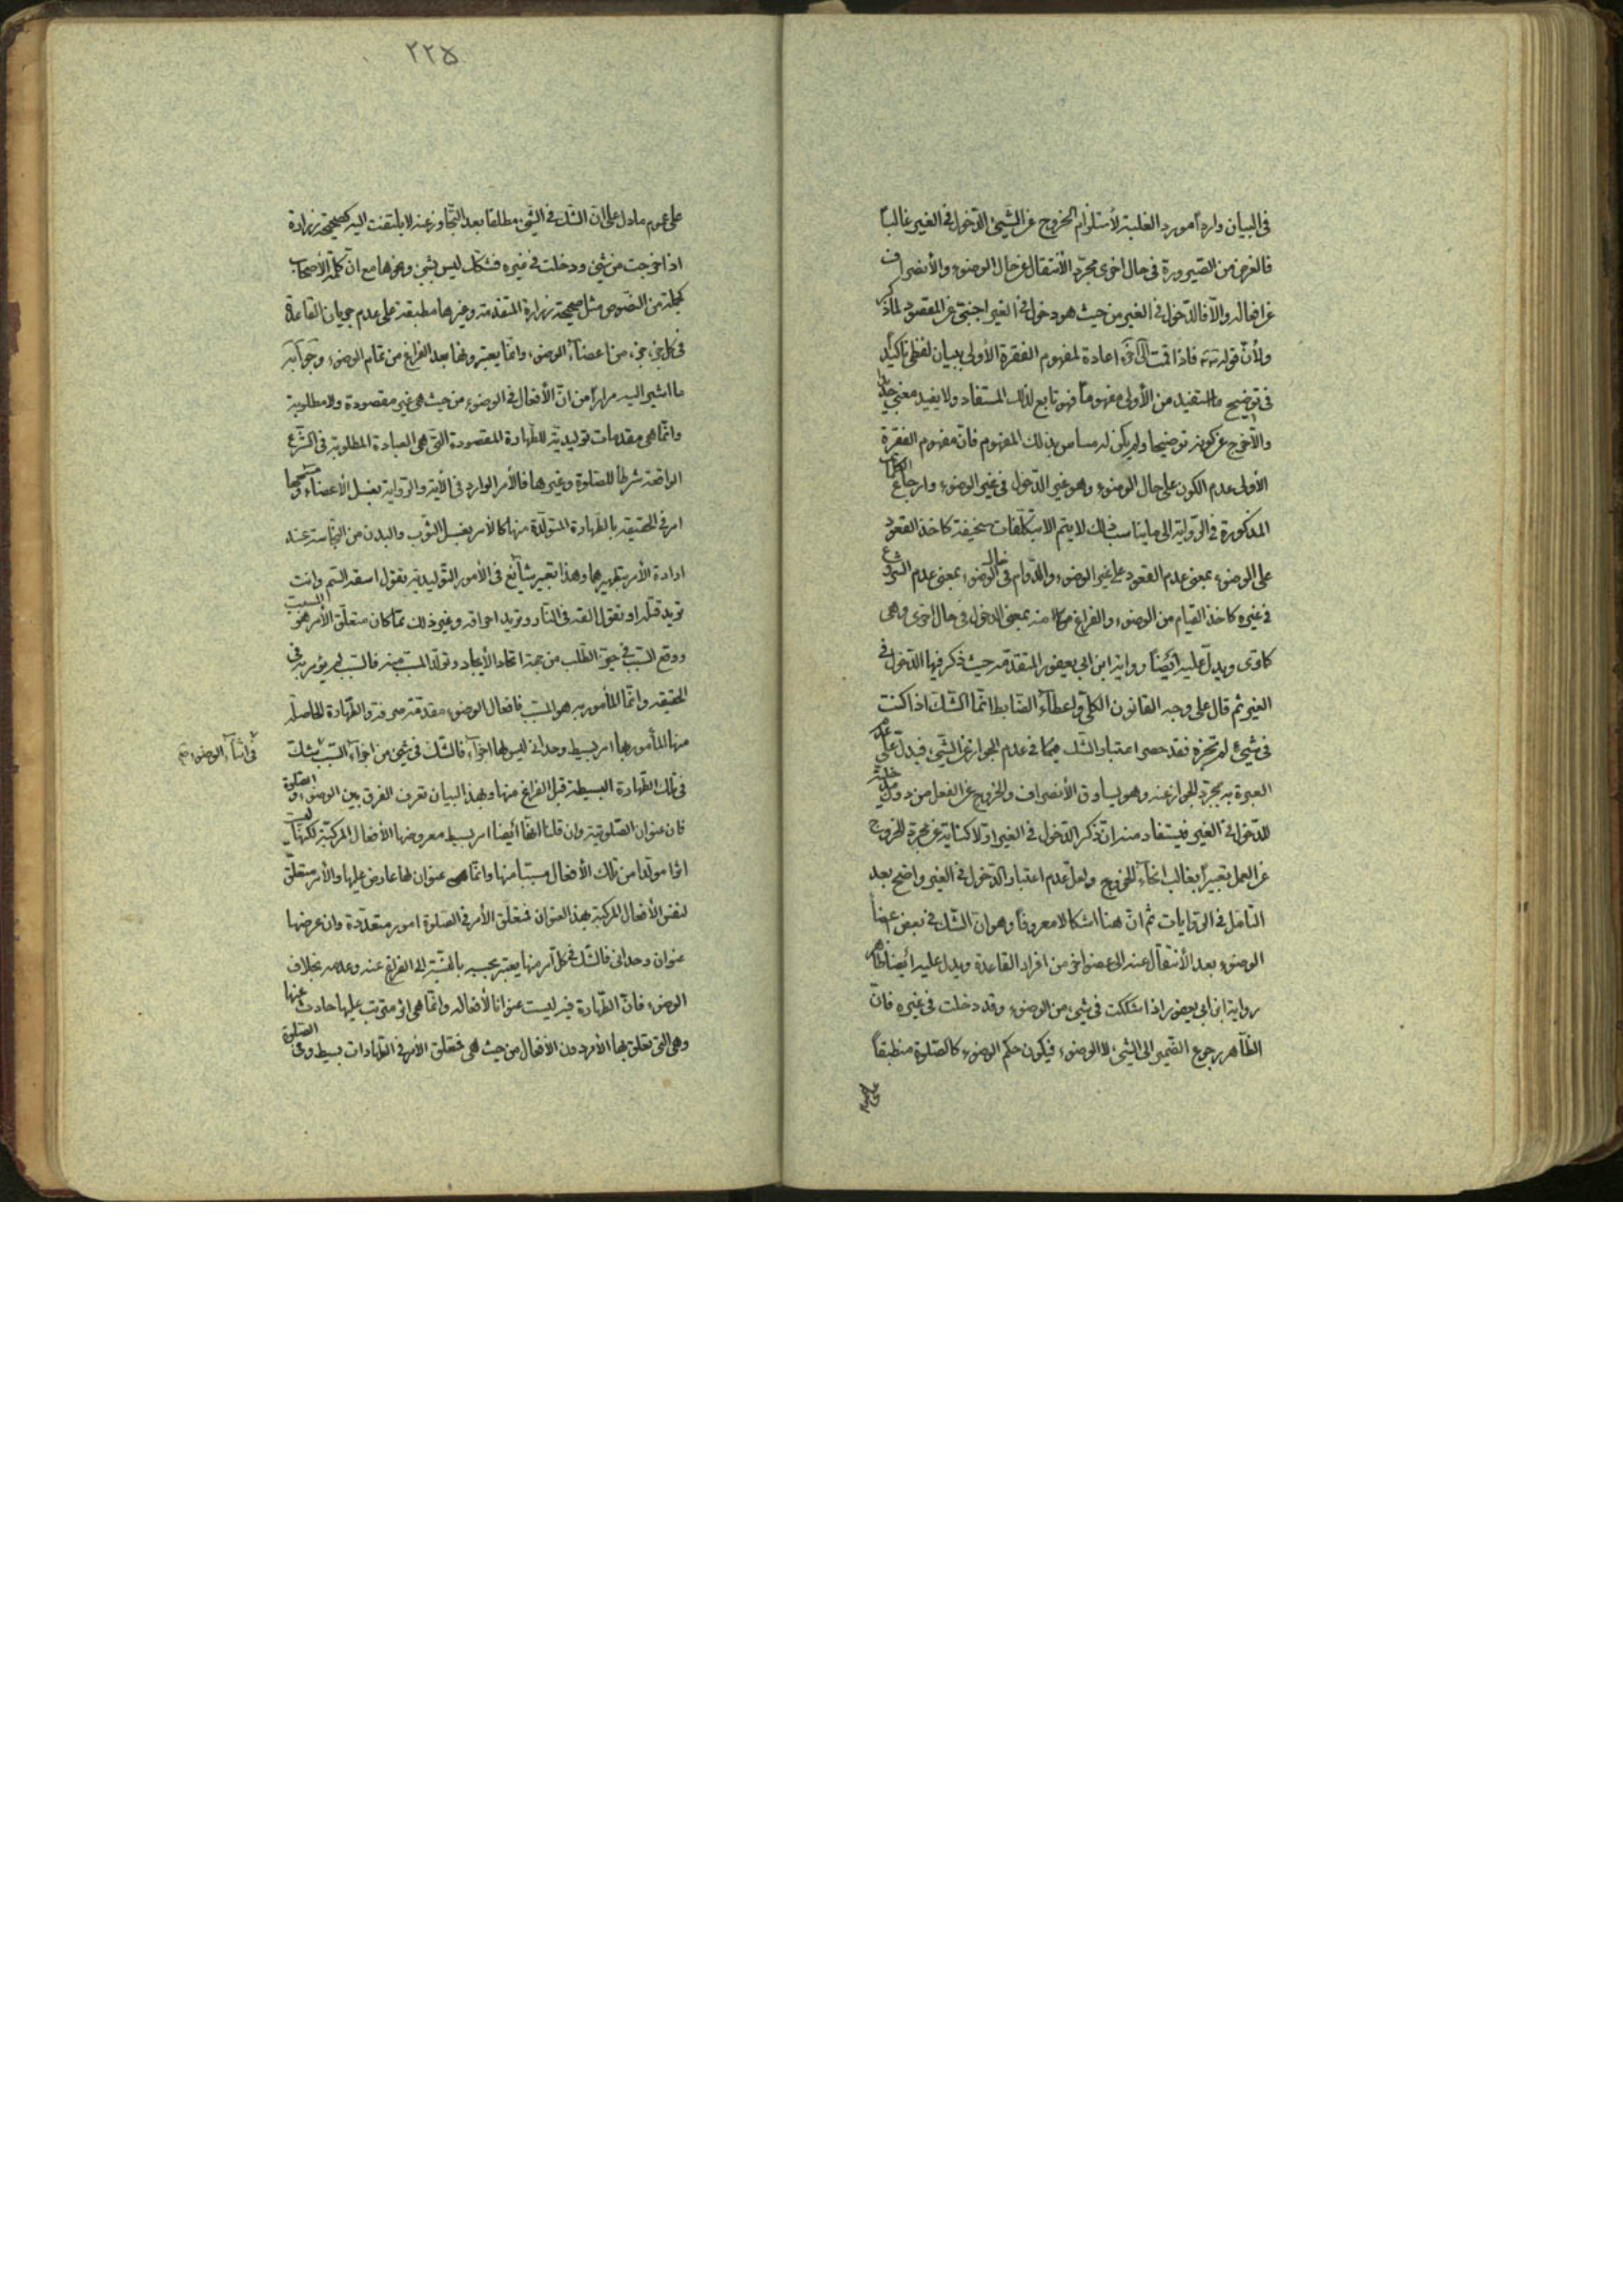 في البيان وارداً مورد الغلبة لأستلزام الخروج عن الشيئ الدّخول في الغير غالباً
فالغرض من الصّيرورة في حال اخرى مجرّد الأنتقال عن حال الوضوء والأنصراف
عن افعاله والّا فالدّخول في الغير من حيث هو دخول في الغير اجنبيّ عن المقصود
ولأنّ قوله فاذا قمت اعادة لمفهوم الفقرة الأولى ببيان لفظي تأكيد
في توضيح ما استفيد من الأولى مفهوماً فهو تابع لذلك المستفاد ولا يفيد معنى جديداً
والّا خرج عن كونه توضيحا ولم يكن له مساس بذلك المفهوم فانّ مفهوم الفقرة
الأولى عدم الكون على حال الوضوء وهو غير الدّخول في غير الوضوء وارجاع الفقرات
المذكورة في الرّواية الى ما يناسب ذلك لا يتم الا بتكلّفات سخيفة كاخذ القعود
على الوضوء بمعنى عدم القعود على غير الوضوء والدّوام في حال الوضوء بمعنى عدم الشروع
في غيره كاخذ القيام من الوضوء والفراغ منه بمعنى الدخول في حال اخرى وهي
كما ترى ويدلّ عليه أيضاً رواية ابن ابي يعفور المتقدّمة حيث ذكر فيها الدّخول في
الغير ثم قال على وجه القانون الكلّي واعطاء الضّابط انّما الشّك اذا كنت
في شيئ لم تجزه فقد حصر اعتبار الشّك فيما في عدم الجواز عن الشّيئ فيدلّ على عدم
العبرة به بمجرّد الجواز عنه وهو يساوق الأنصراف والخروج عن الفعل من دون مدخليّة
للدّخول في الغير فيستفاد منه انّ ذكر الدّخول في الغير اوّلا كناية عن مجرّد الخروج
عن العمل تعبيراً بغالب انحاء الخروج ولعلّ عدم اعتبار الدّخول في الغير واضح بعد
التأمّل في الرّوايات ثم انّ هنا اشكالا معروفاً وهو انّ الشّك في بعض اعضاء
الوضوء بعد الأنتقال عنه الى عضو اخر من افراد القاعدة ويدل عليه أيضا ظاهر
رواية ابن أبي يعفور اذا شككت في شيئ من الوضوء وقد دخلت في غيره فانّ
الظّاهر رجوع الضّمير الى الشّيئ لا الوضوء فيكون حكم الوضوء كالصّلوة منطبقاً
على عموم
٢٢٥
على عموم ما دل على انّ الشّك في الشّيئ مطلقا بعد التّجاوز عنه لا يلتفت اليه كصحيحة زرارة
اذا خرجت من شيئ ودخلت في غيره فشكّك ليس بشيئ ونحوها مع انّ كلمة الأصحاب
كجملة من النّصوص مثل صحيحة زرارة المتقدمة وغيرها مطبقة على عدم جريان القاعدة
في كل جزء جزء من اعضاء الوضوء وانّما يعتبرونها بعد الفراغ من تمام الوضوء وجوابه
ما اشير اليه مراراً من انّ الأفعال في الوضوء من حيث هي غير مقصودة ولا مطلوبة
وانّما هي مقدمات توليديّة للطّهارة المقصودة الّتي هي العبادة المطلوبة في الشّرع
الواقعة شرطاً للصّلوة وغيرها فالأمر الوارد في الآية والرّواية بغسل الأعضاء ومسحها
امر في الحقيقة بالطّهارة المتولّدة منها كالأمر بغسل الثّوب والبدن من النّجاسة عند
ارادة الأمر بتطهيرها وهذا تعبير شائع في الأمور التّوليدية تقول اسقه السّم وانت
تريد قتله او تقول القه في النّار وتريد احراقه وغير ذلك ممّا كان متعلّق الأمر هو المسبب
ووقع السّبب في حيّز الطّلب من جهة اتحاد الأيجاد وتولّد المسبب منه فالسّبب لم يؤمر به في
الحقيقة وانّما المأمور به هو المسبّب فافعال الوضوء مقدّمة صرفة والطّهارة الحاصلة
منها المأمور بها امر بسيط وحداني ليس لها اجزاء فالشّك في شيئ من اجزاء السّبب شك
في اثناء الوضوء صح
في تلك الطّهارة البسيطة قبل الفراغ منها وبهذا البيان تعرف الفرق بين الوضوء والصلوة
فان عنوان الصّلوتية وان قلنا انّها أيضاً امر بسيط معروضها الأفعال المركبّة لكنّها ليست
اثرا مولّدا من تلك الأفعال مسبّباً منها وانّما هي عنوان لها عارض عليها والأمر متعلّق
لنفس الأفعال المركبّة بهذا العنوان فمتعلّق الأمر في الصّلوة امور متعدّدة وان عرضها
عنوان وحداني فالشّك في كل امر منها يعتبر بحسبه بالنّسبة الى الفراغ عنه وعدمه بخلاف
الوضوء فانّ الطّهارة فيه ليست عنوانا لأفعاله وانّما هي اثر مترتب عليها حادث عنها
وهي التي تعلّق بها الأمر دون الأفعال من حيث هي فتعلّق الأمر في الطّهارات بسيط وفي الصّلوة